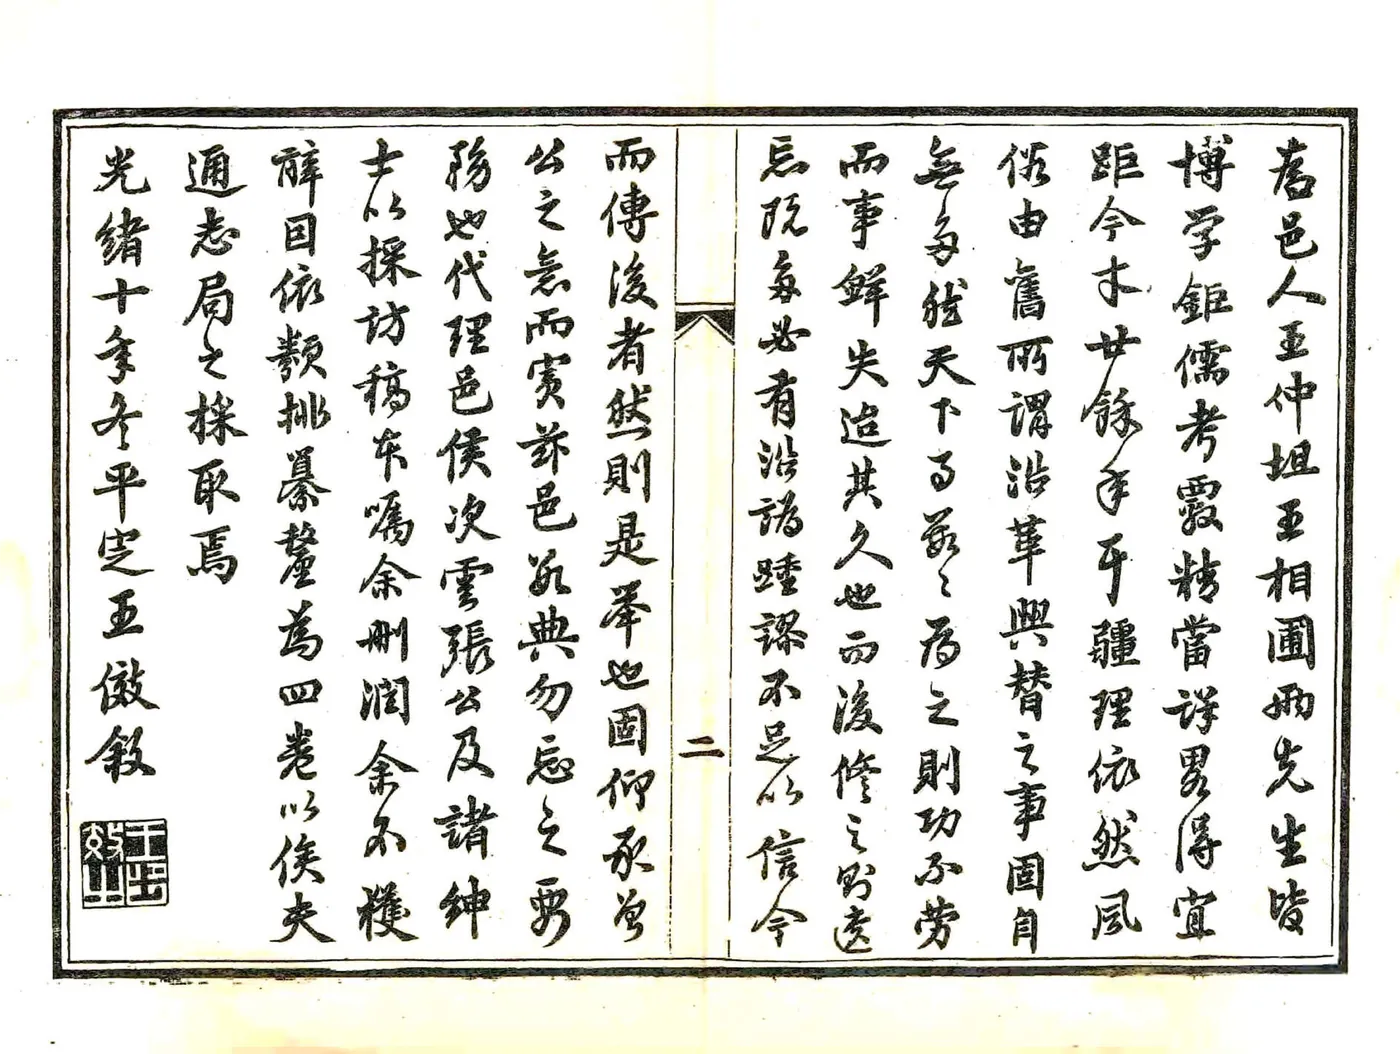 耆邑人王仲坦王相圃兩先生皆
博学鉅儒考覈精當詳畧得宜
距今才廿餘年耳疆理依然風
俗由舊所謂沿革興替之事固自
無多然天下事每〻為之則功不劳
而事鮮失迨其久也而後修之則遺
忘既多必有沿譌踵謬不足以信今
而傳後者然則是举也固仰承曾
公之意而實茲邑数典勿忘之要
務也代理邑侯次雲張公及諸紳
士以採訪稿本嘱余刪潤余不獲
辞因依類排纂釐為四卷以俟夫
通志局之採取焉
光緒十年冬平定王儆叙
二